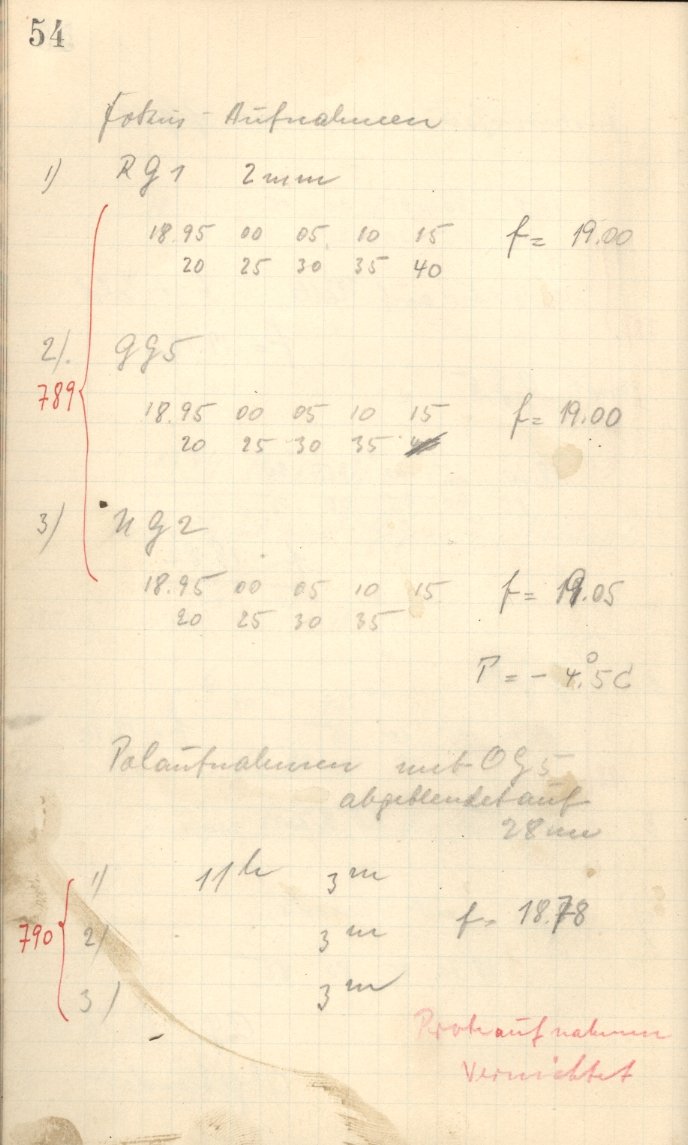 54
Fokus - Aufnahmen
1) RG1 2mm
18.95 00 05 10 15 f = 19.00
20 25 30 35 40
2). GG5
789
18.95 00 05 10 15 f = 19.00
20 25 30 35
3) UG2
18.95 00 05 10 15 f = 19.05
20 25 30 35
T = - 4°.5 C
Polaufnahmen mit OG5
abgeblendet auf
28 mm
1) 11h 3m
f = 18.78
790
2) 3m
3) 3m
Probeaufnahmen
Vernichtet